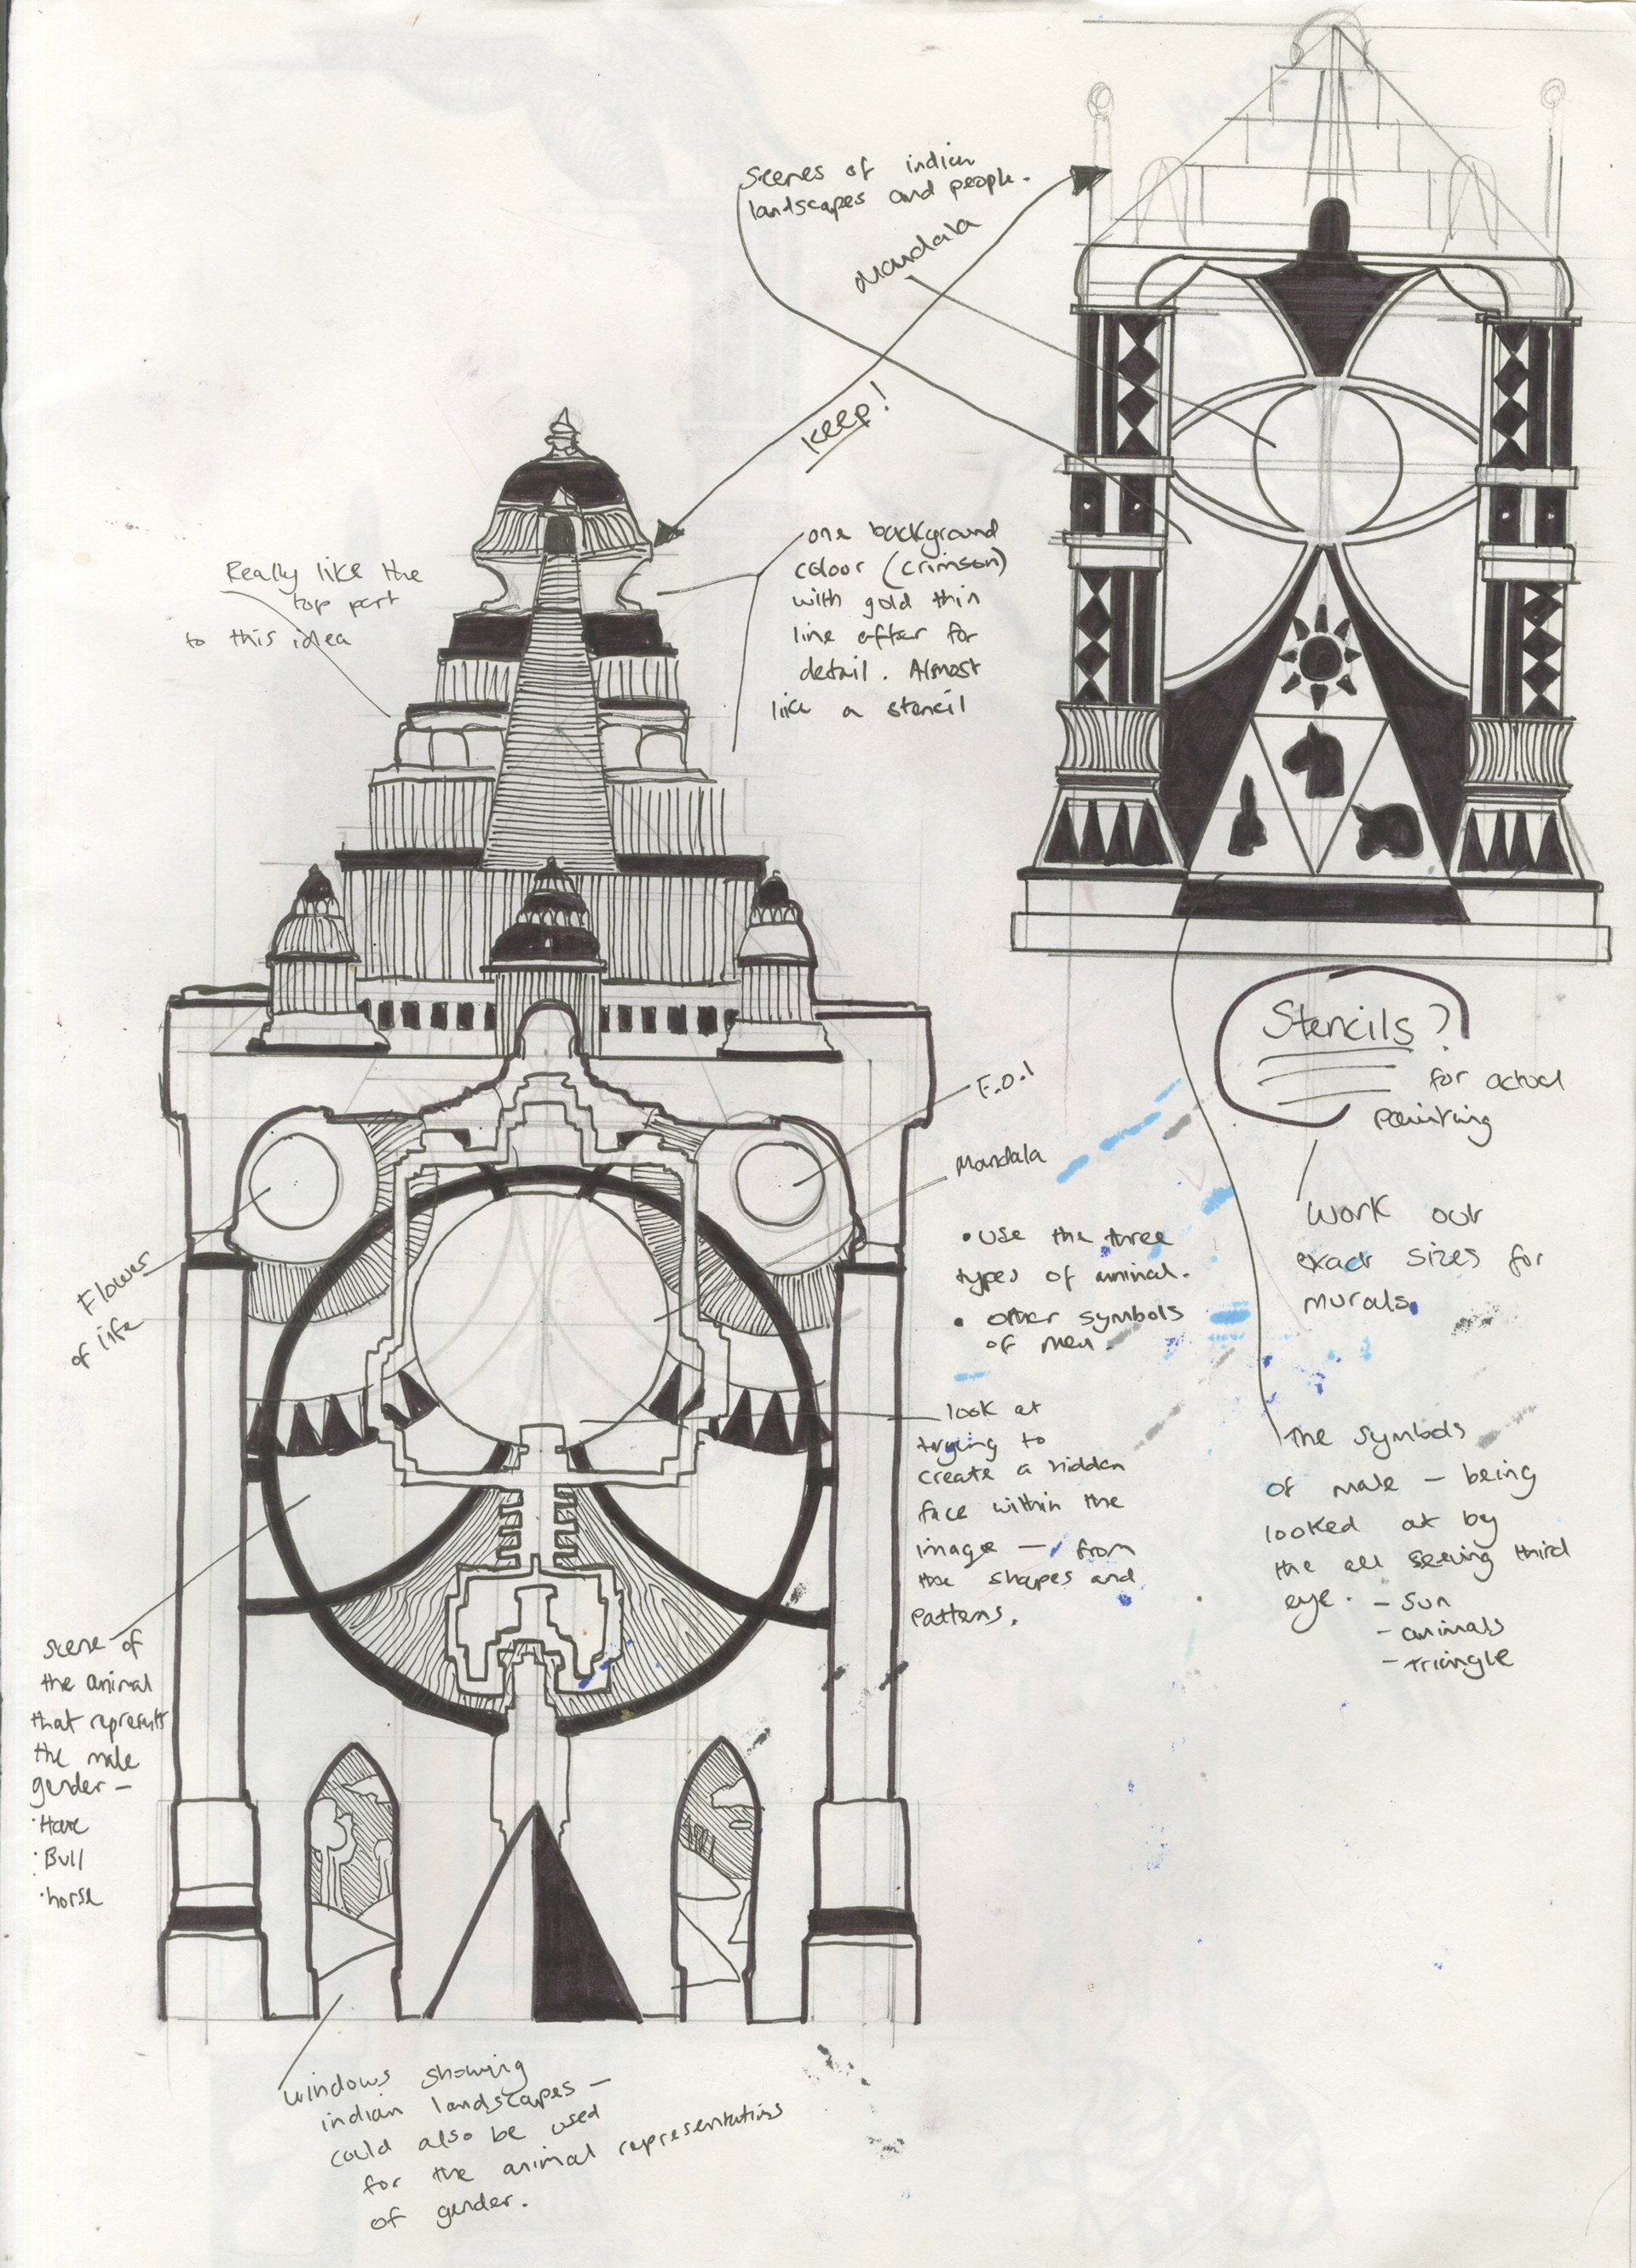 Scenes of indian
landscapes and people.
Mandala
KEEP!
Really like the
top part
to this idea
one background
colour (crimson)
with gold thin
line after for
detail. Almost
like a stencil
Stencils?
for actual
painting
work out
exact sizes for
murals.
F.O.l
Mandala
• use the three
types of animal.
• other symbols
of men.
Flower
of life
look at
trying to
create a hidden
face within the
image — from
the shapes and
patterns.
The symbols
of male — being
looked at by
the all seeing third
eye. - sun
- animals
- triangle
scene of
the animal
that represents
the male
gender —
· Hare
· Bull
· horse
windows showing
indian landscapes —
could also be used
for the animal representations
of gender.